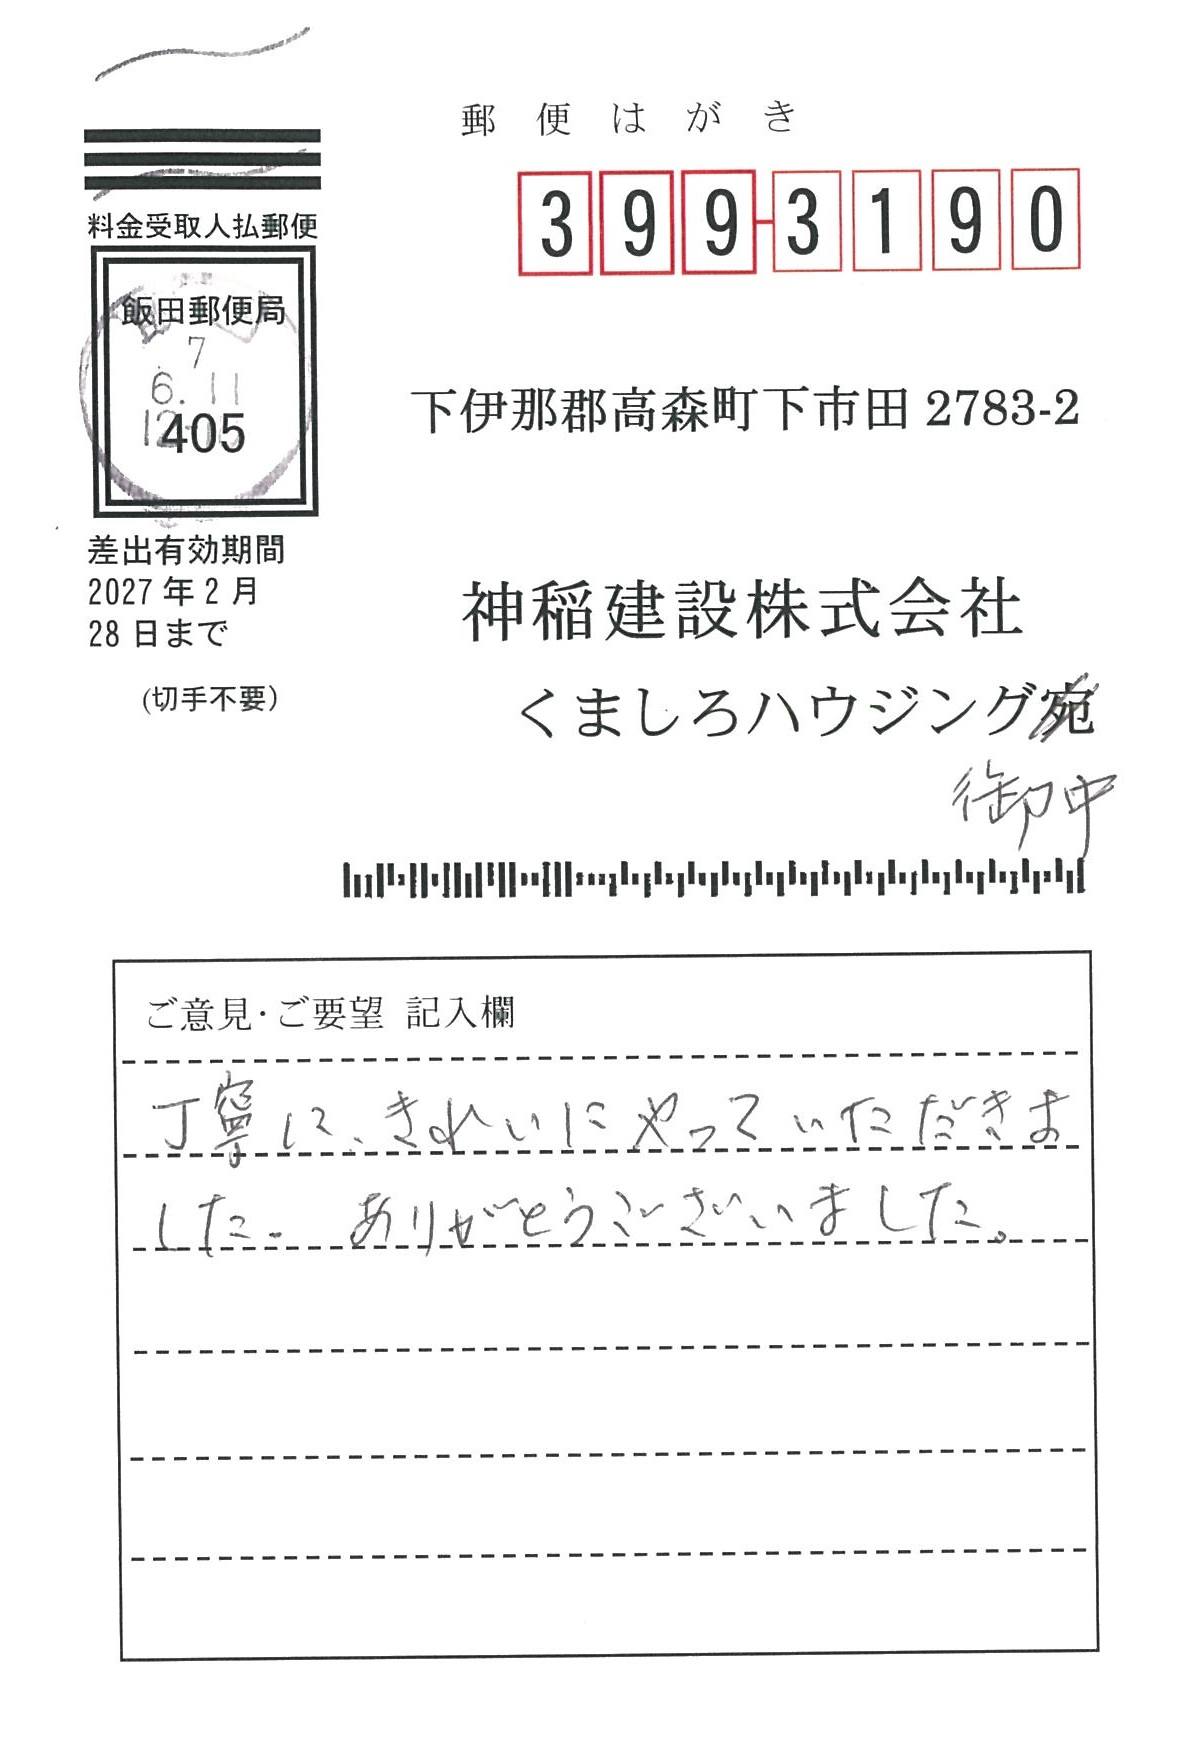 郵便はがき
399-3190
料金受取人払郵便
飯田郵便局
7
6.11
12-
405
差出有効期間
2027年2月
28日まで
(切手不要)
下伊那郡高森町下市田2783-2
神稲建設株式会社
くましろハウジング宛
御中
ご意見・ご要望 記入欄
丁寧に、きれいにやっていただきま
した。ありがとうございました。